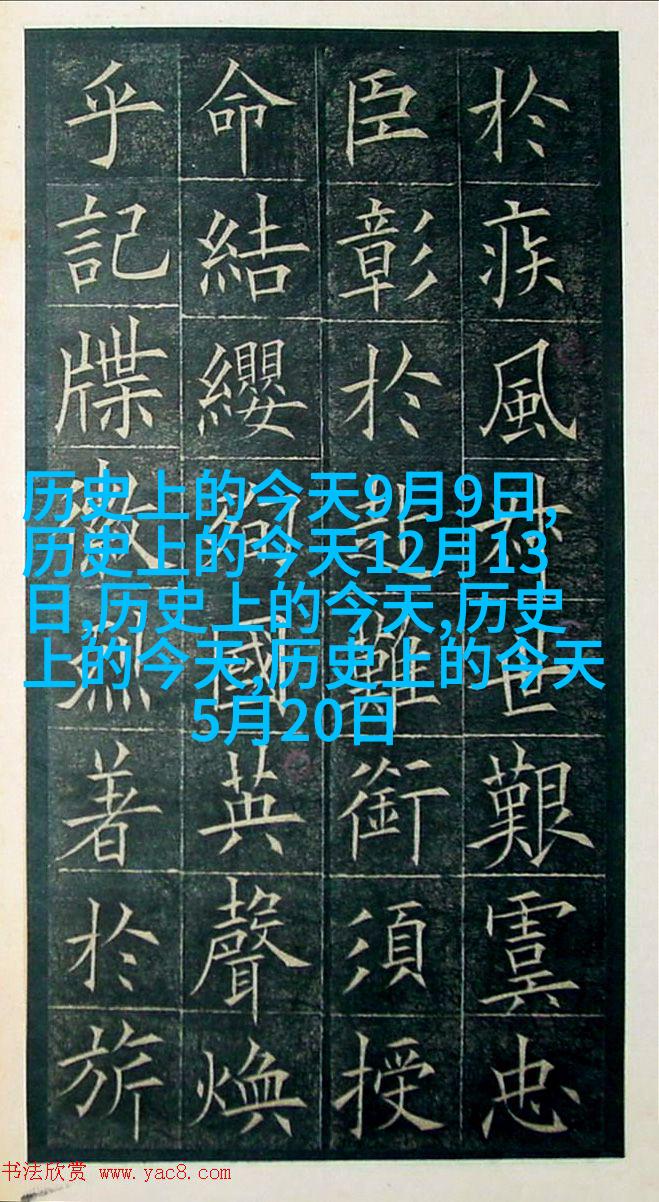 於疾風世艱虞忠
臣彰於赴難銜須授
命結纓殉國英聲煥
乎記牒徽烈著於旂
历史上的今天9月9日,
历史上的今天12月13
日,历史上的今天,历史
上的今天,历史上的今天
5月20日
书法欣赏 www.yac8.com